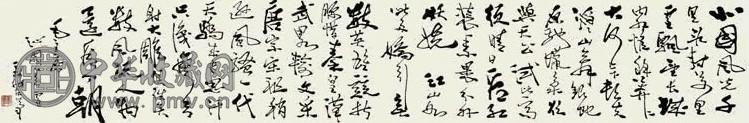 北国风光千
里冰封万里
雪飘望长城
内外惟余莽莽
大河上下顿失
滔滔山舞银蛇
原驰蜡象欲
与天公试比高
须晴日看红
装素裹分外
妖娆江山如
此多娇引无
数英雄竞折
腰惜秦皇汉
武略输文采
唐宗宋祖稍
逊风骚一代
天骄成吉思
汗只识弯弓
射大雕俱往矣
数风流人物
还看今朝
毛主席
沁园春